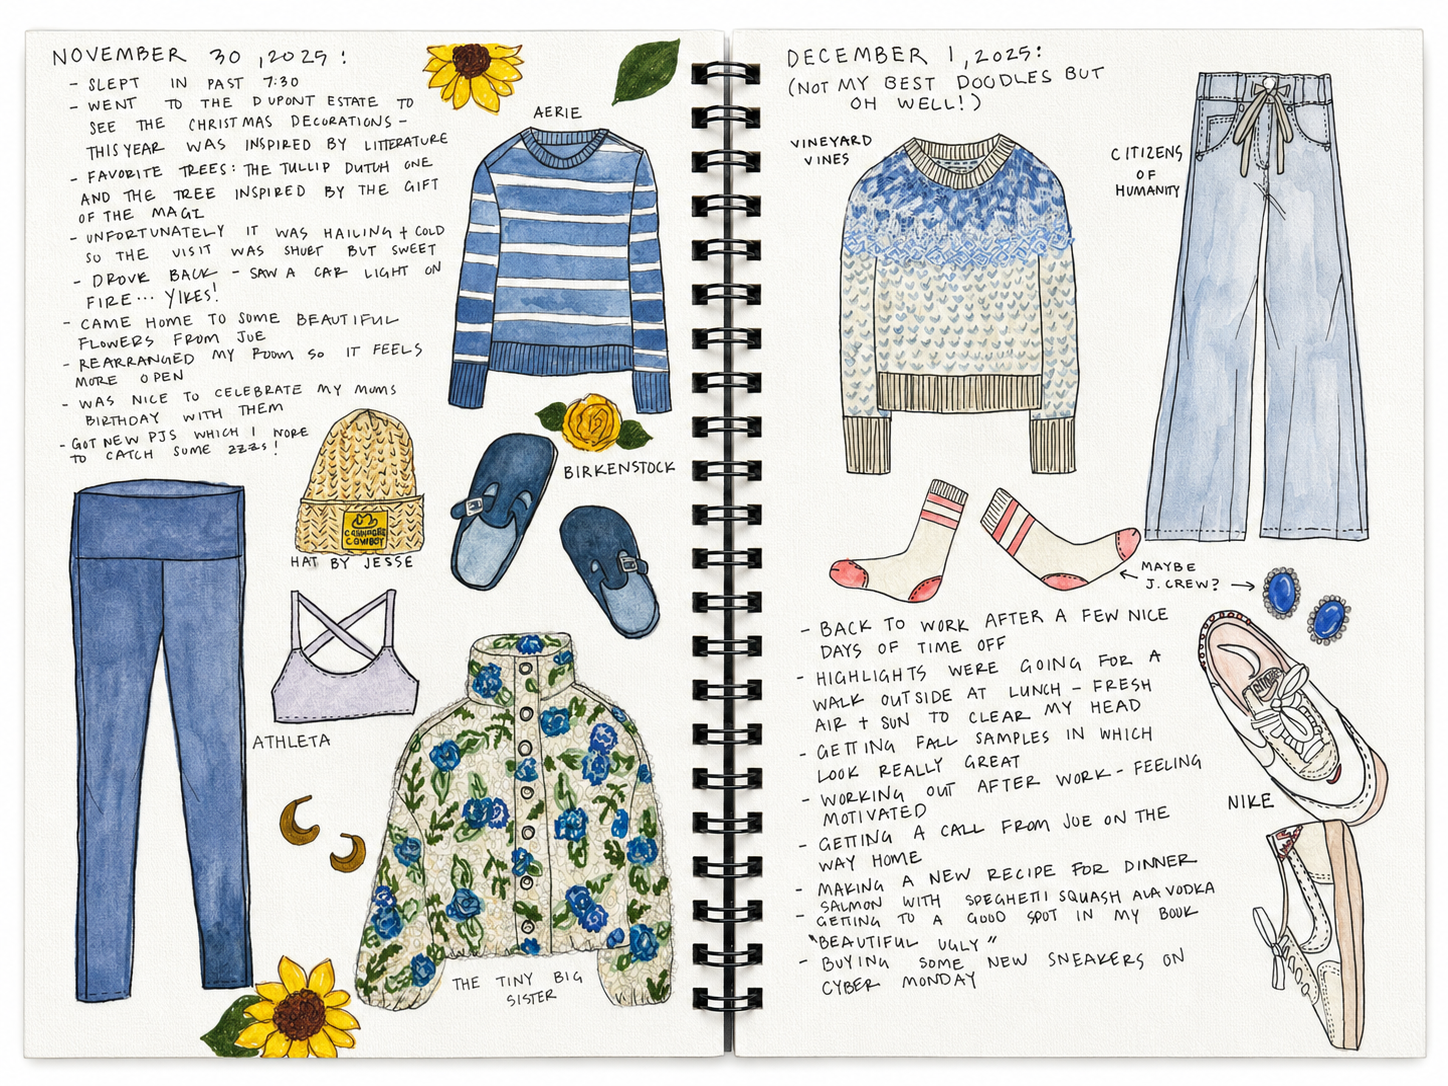 NOVEMBER 30, 2025:
- SLEPT IN PAST 7:30
- WENT TO THE DUPONT ESTATE TO
SEE THE CHRISTMAS DECORATIONS -
THIS YEAR WAS INSPIRED BY LITTERATURE
- FAVORITE TREES: THE TULLIP DUTCH ONE
AND THE TREE INSPIRED BY THE GIFT
OF THE MAGI
- UNFORTUNATELY IT WAS HAILING + COLD
SO THE VISIT WAS SHORT BUT SWEET
- DROVE BACK - SAW A CAR LIGHT ON
FIRE... YIKES!
- CAME HOME TO SOME BEAUTIFUL
FLOWERS FROM JOE
- REARRANGED MY ROOM SO IT FEELS
MORE OPEN
- WAS NICE TO CELEBRATE MY MOMS
BIRTHDAY WITH THEM
- GOT NEW PJS WHICH I WORE
TO CATCH SOME ZZZS!
AERIE
BIRKENSTOCK
COWBOY
HAT BY JESSE
ATHLETA
THE TINY BIG
SISTER
DECEMBER 1, 2025:
(NOT MY BEST DOODLES BUT
OH WELL!)
VINEYARD
VINES
CITIZENS
OF
HUMANITY
MAYBE
J. CREW?
- BACK TO WORK AFTER A FEW NICE
DAYS OF TIME OFF
- HIGHLIGHTS WERE GOING FOR A
WALK OUTSIDE AT LUNCH - FRESH
AIR + SUN TO CLEAR MY HEAD
- GETTING FALL SAMPLES IN WHICH
LOOK REALLY GREAT
- WORKING OUT AFTER WORK - FEELING
MOTIVATED
- GETTING A CALL FROM JOE ON THE
WAY HOME
- MAKING A NEW RECIPE FOR DINNER
SALMON WITH SPEGHETTI SQUASH ALA VODKA
- GETTING TO A GOOD SPOT IN MY BOOK
"BEAUTIFUL UGLY"
- BUYING SOME NEW SNEAKERS ON
CYBER MONDAY
NIKE